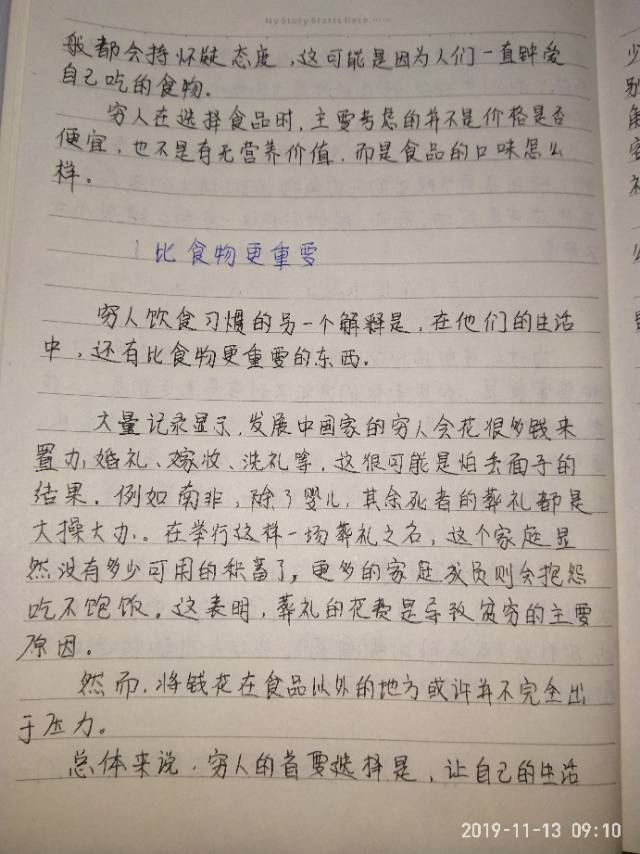 My Story Starts Here
般都会持怀疑态度，这可能是因为人们一直钟爱
自己吃的食物。
穷人在选择食品时，主要考虑的并不是价格是否
便宜，也不是有无营养价值，而是食品的口味怎么
样。
比食物更重要
穷人饮食习惯的另一个解释是，在他们的生活
中，还有比食物更重要的东西。
大量记录显示，发展中国家的穷人会花很多钱来
置办婚礼、嫁妆、洗礼等，这很可能是怕丢面子的
结果。例如南非，除了婴儿，其余死者的葬礼都是
大操大办。在举行这样一场葬礼之名，这个家庭显
然没有多少可用的积蓄了，更多的家庭成员则会抱怨
吃不饱饭。这表明，葬礼的花费是导致贫穷的主要
原因。
然而，将钱花在食品以外的地方或许并不完全出
于压力。
总体来说，穷人的首要选择是，让自己的生活
2019-11-13 09:10